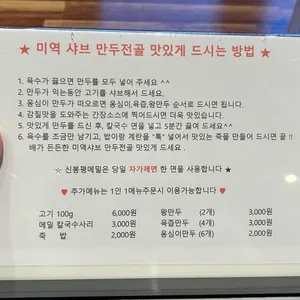 ★ 미역 샤브 만두전골 맛있게 드시는 방법 ★
1. 육수가 끓으면 만두를 모두 넣어 주세요 ^^
2. 만두가 익는동안 고기를 샤브해서 드세요.
3. 옹심이 만두가 떠오르면 옹심이,육즙,왕만두 순서로 드시면 됩니다.
4. 감칠맛을 도와주는 간장소스에 찍어드시면 더욱 맛있습니다.
5. 맛있게 만두를 드신 후, 칼국수 면을 넣고 5분간 끓여 드세요~
6. 육수를 조금만 남기고, 밥이랑 계란을 "톡" 넣어서 맛있는 죽을 만들어 드시면 끝 !!
배가 든든한 미역샤브 만두전골 맛있게 드세요.
★ 신봉평메밀은 당일 자가제면 한 면을 사용합니다 ★
♥ 추가메뉴는 1인 1메뉴주문시 이용가능합니다 ♥
고기 100g 6,000원 왕만두 (2개) 3,000원
메밀 칼국수사리 3,000원 육즙만두 (4개) 3,000원
죽 밥 2,000원 옹심이만두 (6개) 2,000원